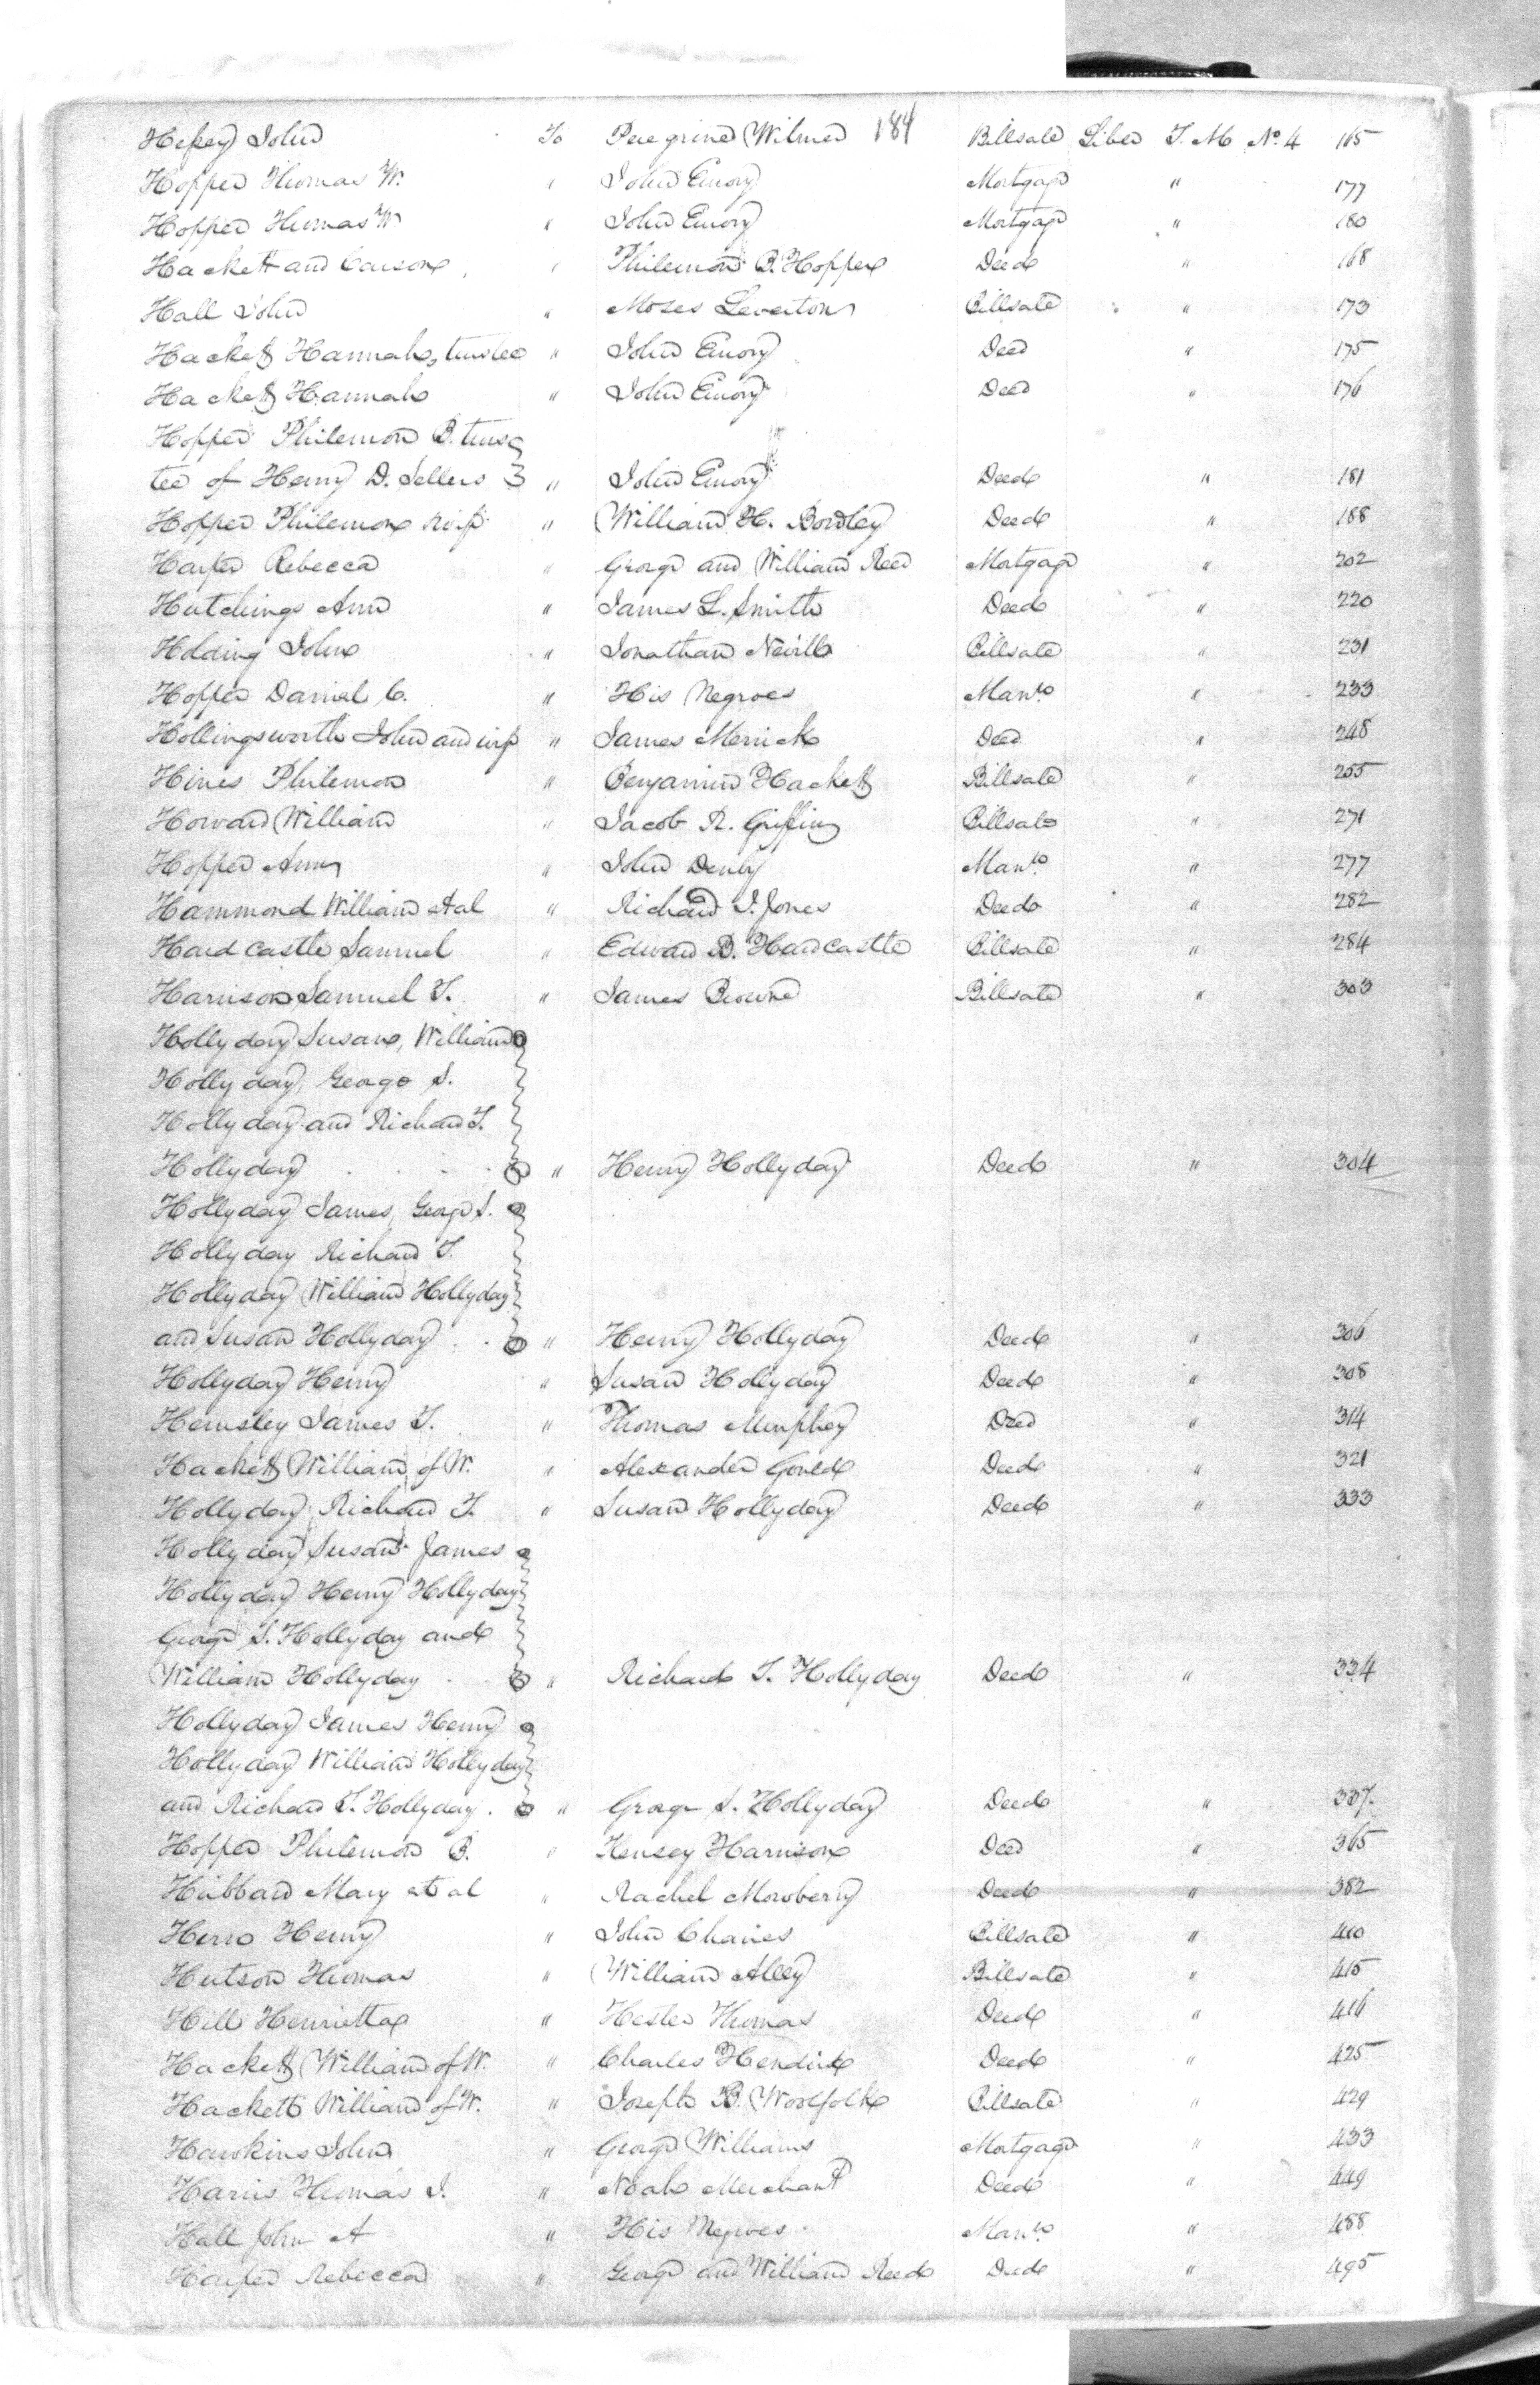 184
John To Peregrine Wilmer Billsale Liber T. M No. 4 165
Hopper Thomas W. " John Emory Mortgage " 177
Hopper Thomas W " John Emory Mortgage " 180
Hackett and Carson " Philemon B. Hopper Deed " 168
Hall John " Moses Leverton Billsale " 173
Hackett Hannah, trustee " John Emory Deed " 175
Hackett Hannah " John Emory Deed " 176
Hopper Philemon B. trus
tee of Henry D. Sellers " John Emory Deed " 181
Hopper Philemon " William H. Bordley Deed " 188
Harper Rebecca " George and William Reed Mortgage " 202
Hutchings Ann " James L. Smith Deed " 220
Holding John " Jonathan Nevill Billsale " 231
Hopper Daniel C. " His Negroes Man.to " 233
Hollingsworth John and wife " James Merrick Deed " 248
Hines Philemon " Benjamin Hackett Billsale " 255
Howard William " Jacob R. Griffin Billsale " 271
Hopper Ann " John Denby Man.to " 277
Hammond William et al " Richard I. Jones Deed " 282
Hardcastle Samuel " Edward B. Hardcastle Billsale " 284
Harrison Samuel T. " James Browne Billsale " 303
Hollyday Susan, William
Hollyday, George S.
Hollyday and Richard T.
Hollyday " Henry Hollyday Deed " 304
Hollyday James, George S.
Hollyday Richard T.
Hollyday William Hollyday
and Susan Hollyday " Henry Hollyday Deed " 306
Hollyday Henry " Susan Hollyday Deed " 308
Hemsley James T. " Thomas Murphey Deed " 314
Hackett William of W. " Alexander Gould Deed " 321
Hollyday Richard T. " Susan Hollyday Deed " 333
Hollyday Susan James
Hollyday Henry Hollyday
George S. Hollyday and
William Hollyday " Richard T. Hollyday Deed " 334
Hollyday James Henry
Hollyday William Hollyday
and Richard T. Hollyday " George S. Hollyday Deed " 337
Hopper Philemon B. " Kensey Harrison Deed " 365
Hubbard Mary et al " Rachel Mowberry Deed " 382
Henry " John Chaires Billsale " 410
Hutson Thomas " William Alley Billsale " 415
Hill Henrietta " Hester Thomas Deed " 416
Hackett William of W. " Charles Deed " 425
Hackett William of W. " Joseph B. Woolfolk Billsale " 429
Hawkins John " George Williams Mortgage " 433
Harris Thomas I. " Noah Merchant Deed " 449
Hall John A " His Negroes Man.to " 488
Harper Rebecca " George and William Reed Deed " 495